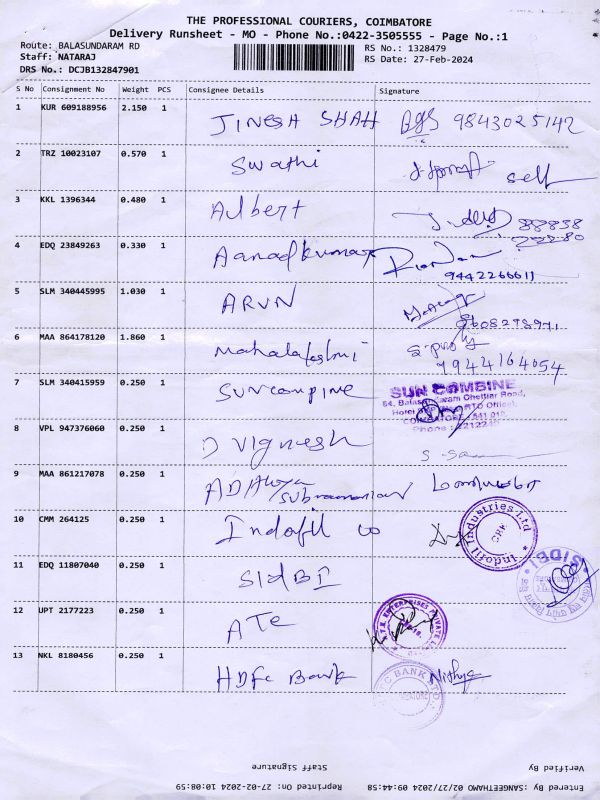 THE PROFESSIONAL COURIERS, COIMBATORE
Delivery Runsheet - MO - Phone No.:0422-3505555 - Page No.:1
Route: BALASUNDARAM RD
RS No.: 1328479
Staff: NATARAJ
RS Date: 27-Feb-2024
DRS No.: DCJB132847901
S No Consignment No Weight PCS Consignee Details Signature
1 KUR 609188956 2.150 1 JINESH SHAH 9843025142
2 TRZ 10023107 0.570 1 Swathi self
3 KKL 1396344 0.480 1 Albert
4 EDQ 23849263 0.330 1 Aanadkumar
9442266611
5 SLM 340445995 1.030 1 ARUN
9608298971
6 MAA 864178120 1.860 1 Mahalakshmi
7944164054
7 SLM 340415959 0.250 1 SUNcompine
SUN COMBINE
8 VPL 947376060 0.250 1 D Vignesh
9 MAA 861217078 0.250 1 ADAitya
Subramanian
10 CMM 264125 0.250 1 Indofil co
Industries Ltd
11 EDQ 11807040 0.250 1 SIDBI
SIDBI
12 UPT 2177223 0.250 1 ATe
ENTERPRISES PRIVATE
13 NKL 8180456 0.250 1 HDFc Bank Nithya
BANK LTD
Staff Signature
Verified By
Reprinted On: 27-02-2024 10:08:59
Entered By :SANGEETHAMO 02/27/2024 09:44:58